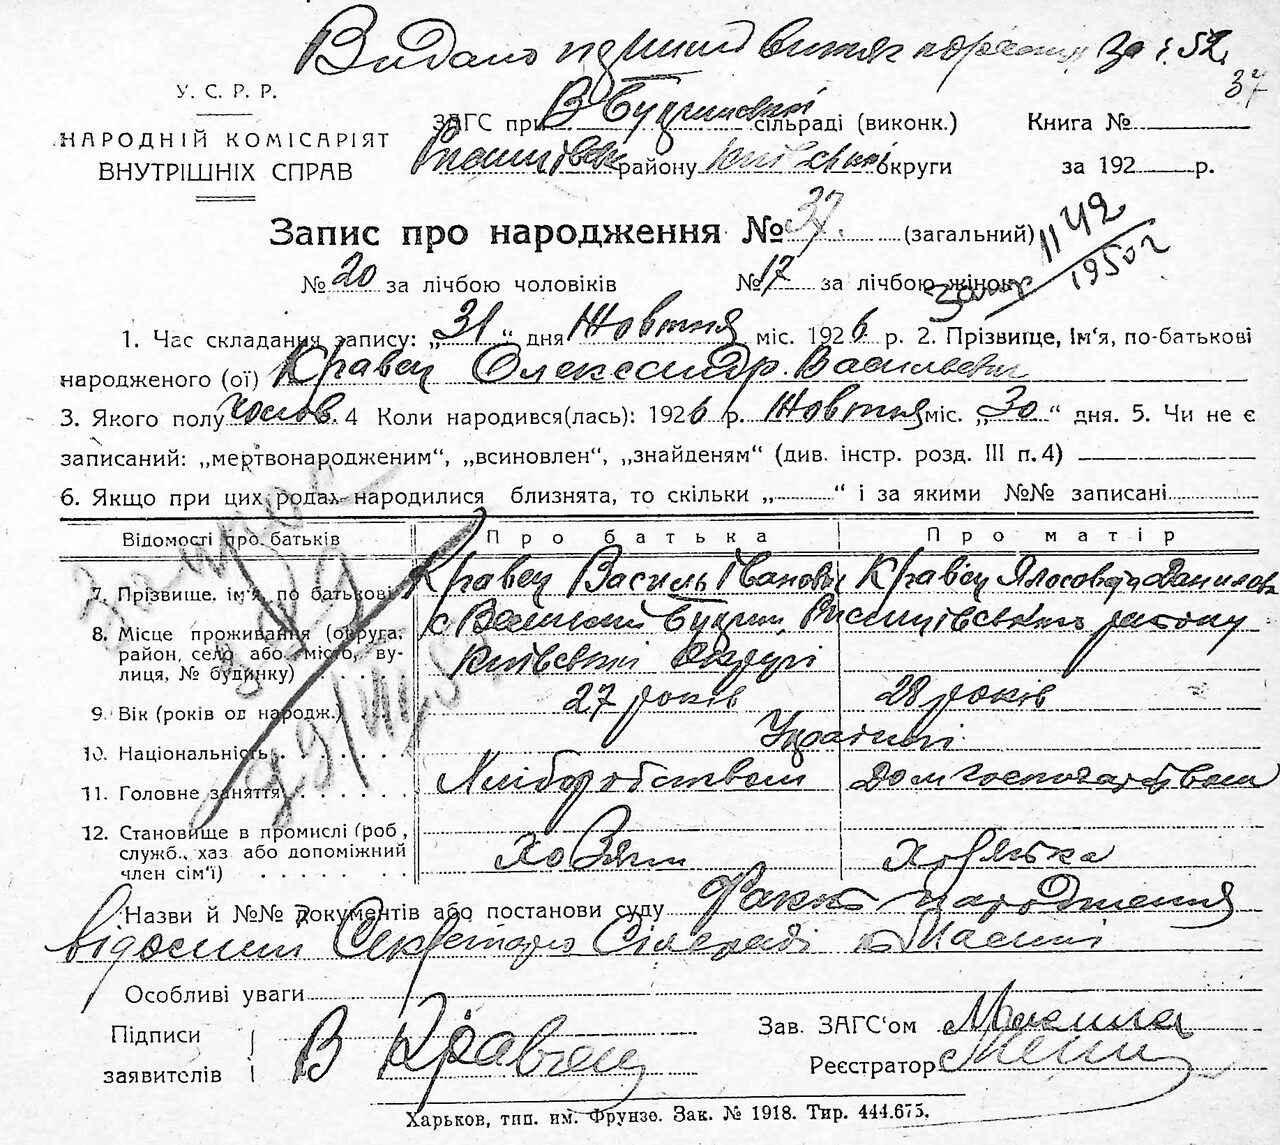 Видано витяг за р. 52
37
У. С. Р. Р.
НАРОДНІЙ КОМІСАРІЯТ
ВНУТРІШНІХ СПРАВ
ЗАГС при В Будищській сільраді (виконк.) Книга №
району Київської округи за 192 р.
Запис про народження № 37. (загальний)
1142
1950 г
№ 20 за лічбою чоловіків № 17 за лічбою жінок
1. Час складання запису: „31“ дня Жовтня міс. 1926 р. 2. Прізвище, Ім‘я, по-батькові
народженого (ої) Кравец Олександр Васильович
3. Якого полу чолов. 4 Коли народився(лась): 1926 р. Жовтня міс. „30“ дня. 5. Чи не є
записаний: „мертвонародженим“, „всиновлен“, „знайденям“ (див. інстр. розд. III п. 4)
6. Якщо при цих родах народилися близнята, то скільки „ “ і за якими №№ записані
Відомості про батьків Про батька Про матір
7. Прізвище, ім‘я, по батькові Кравец Василь Іванович Кравец Данилова
8. Місце проживання (округа, район, село або місто, вулиця, № будинку) с району
Київської округи
9. Вік (років од народж.) 27 років 28 років
10. Національність Українці
11. Головне заняття Хліборобством Дом господарством
12. Становище в промислі (роб, служб., хаз або допоміжний член сім‘ї) Хозяїн Хозяйка
Назви й №№ документів або постанови суду Факт народження
відомий Секретарю Сільради
Особливі уваги
Підписи
заявителів В Кравец
Зав. ЗАГС‘ом
Реєстратор
Харьков, тип. им. Фрунзе. Зак. № 1918. Тир. 444.675.